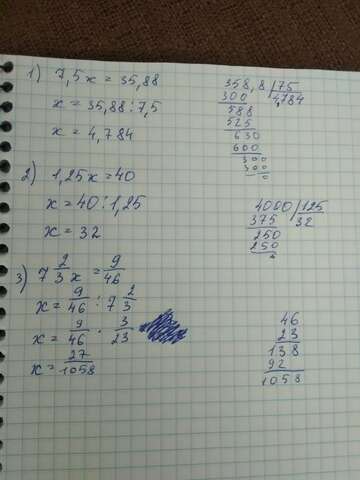 1) 7,5x = 35,88
x = 35,88 : 7,5
x = 4,784
358,8 | 75
300 4,784
588
525
630
600
300
300
0
2) 1,25x = 40
x = 40 : 1,25
x = 32
4000 | 125
375 32
250
250
0
3) 7 2/3 x = 9/46
x = 9/46 : 7 2/3
x = 9/46 · 3/23
x = 27/1058
46
23
138
92
1058